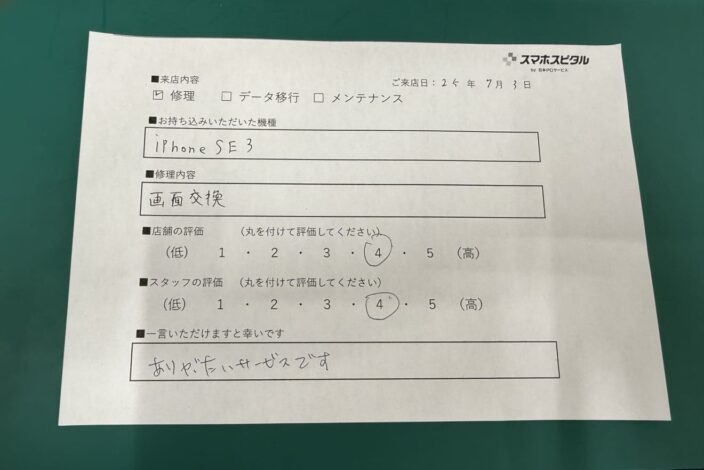 スマホスピタル
by 日本PCサービス
■来店内容
ご来店日：25 年 7 月 3 日
☑ 修理 □ データ移行 □ メンテナンス
■お持ち込みいただいた機種
iPhone SE3
■修理内容
画面交換
■店舗の評価 （丸を付けて評価してください）
（低） 1 ・ 2 ・ 3 ・ 4 ・ 5 （高）
■スタッフの評価 （丸を付けて評価してください）
（低） 1 ・ 2 ・ 3 ・ 4 ・ 5 （高）
■一言いただけますと幸いです
ありがたいサービスです